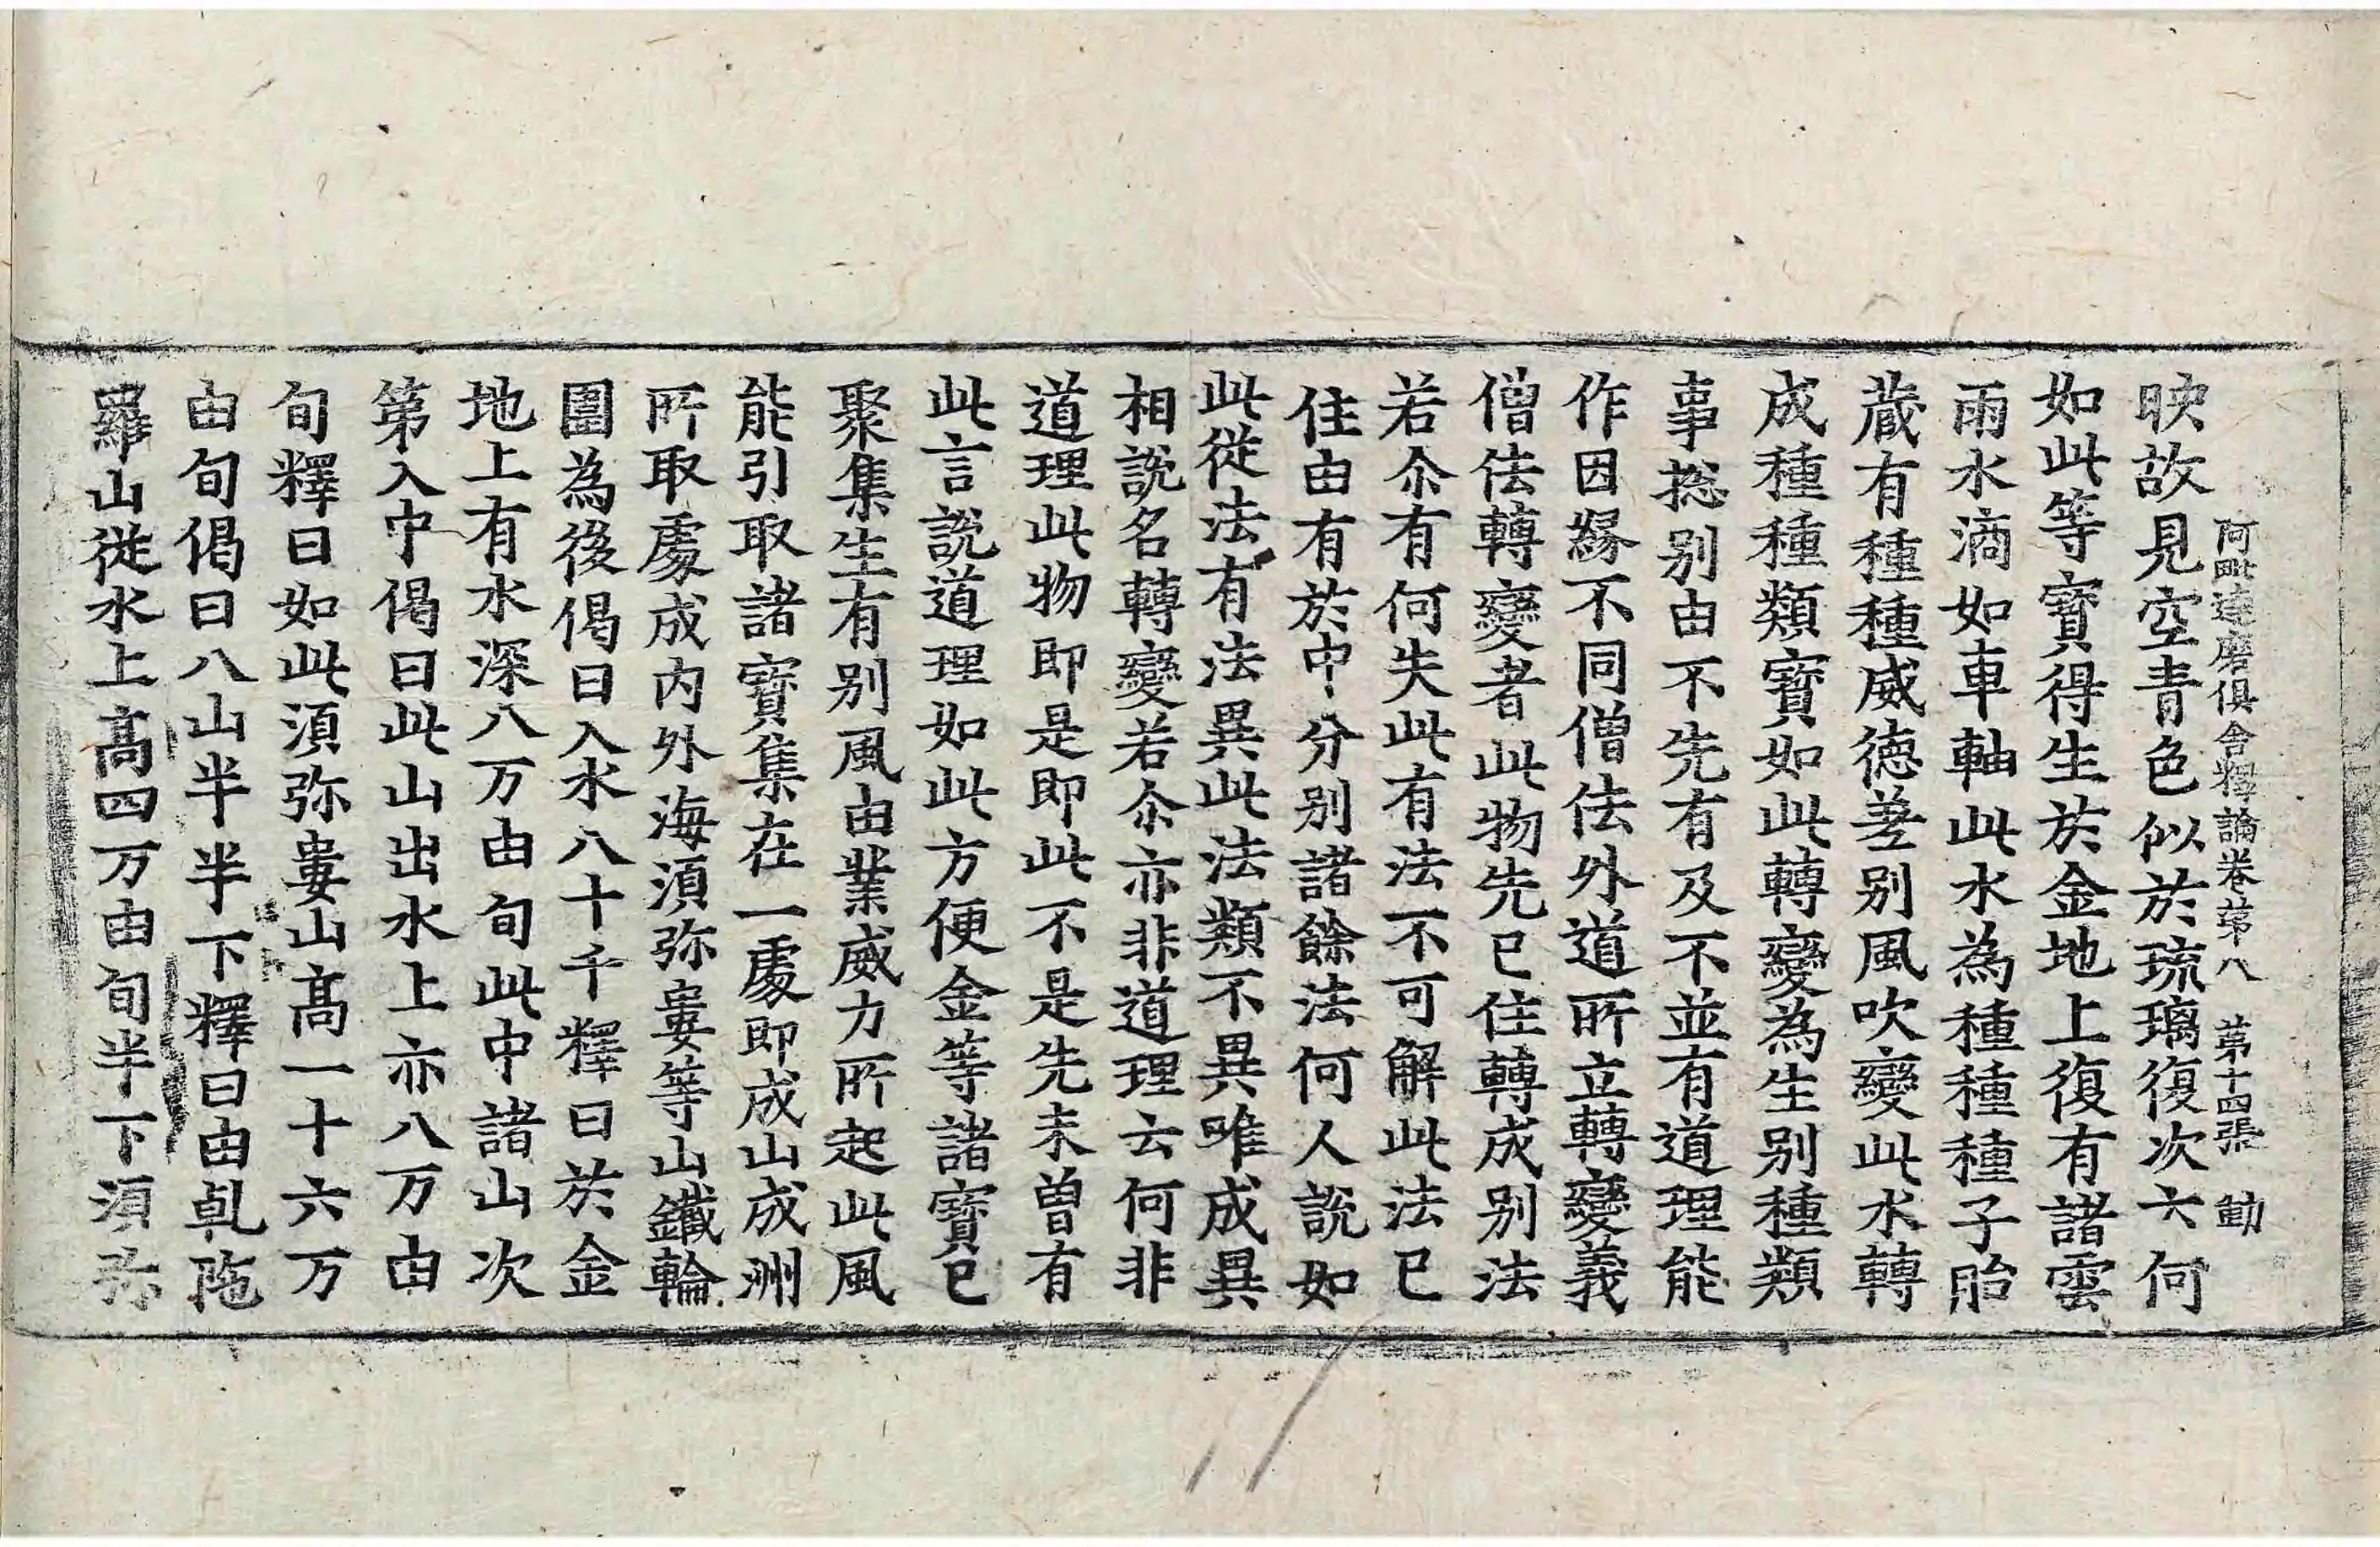 阿毗達磨俱舍釋論卷第八 第十四張 勸
映故見空青色似於琉璃復次六何
如此等寶得生於金地上復有諸雲
雨水滴如車軸此水為種種種子胎
蔵有種種威德差别風吹變此水轉
成種種類寶如此轉變為生别種類
事捴别由不先有及不並有道理能
作因緣不同僧佉外道所立轉變義
僧佉轉變者此物先已住轉成别法
若尒有何失此有法不可解此法已
住由有於中分别諸餘法何人說如
此從法有法異此法類不異唯成異
相說名轉變若尒亦非道理云何非
道理此物即是即此不是先未曾有
此言說道理如此方便金等諸寶已
聚集生有别風由業威力所起此風
能引取諸寶集在一處即成山成洲
所取處成内外海湏弥婁等山鐵輪
圍為後偈曰入水八十千釋曰於金
地上有水深八万由旬此中諸山次
第入中偈曰此山出水上亦八万由
旬釋曰如此湏弥婁山髙一十六万
由旬偈曰八山半半下釋曰由乹陁
羅山從水上髙四万由旬半下湏弥